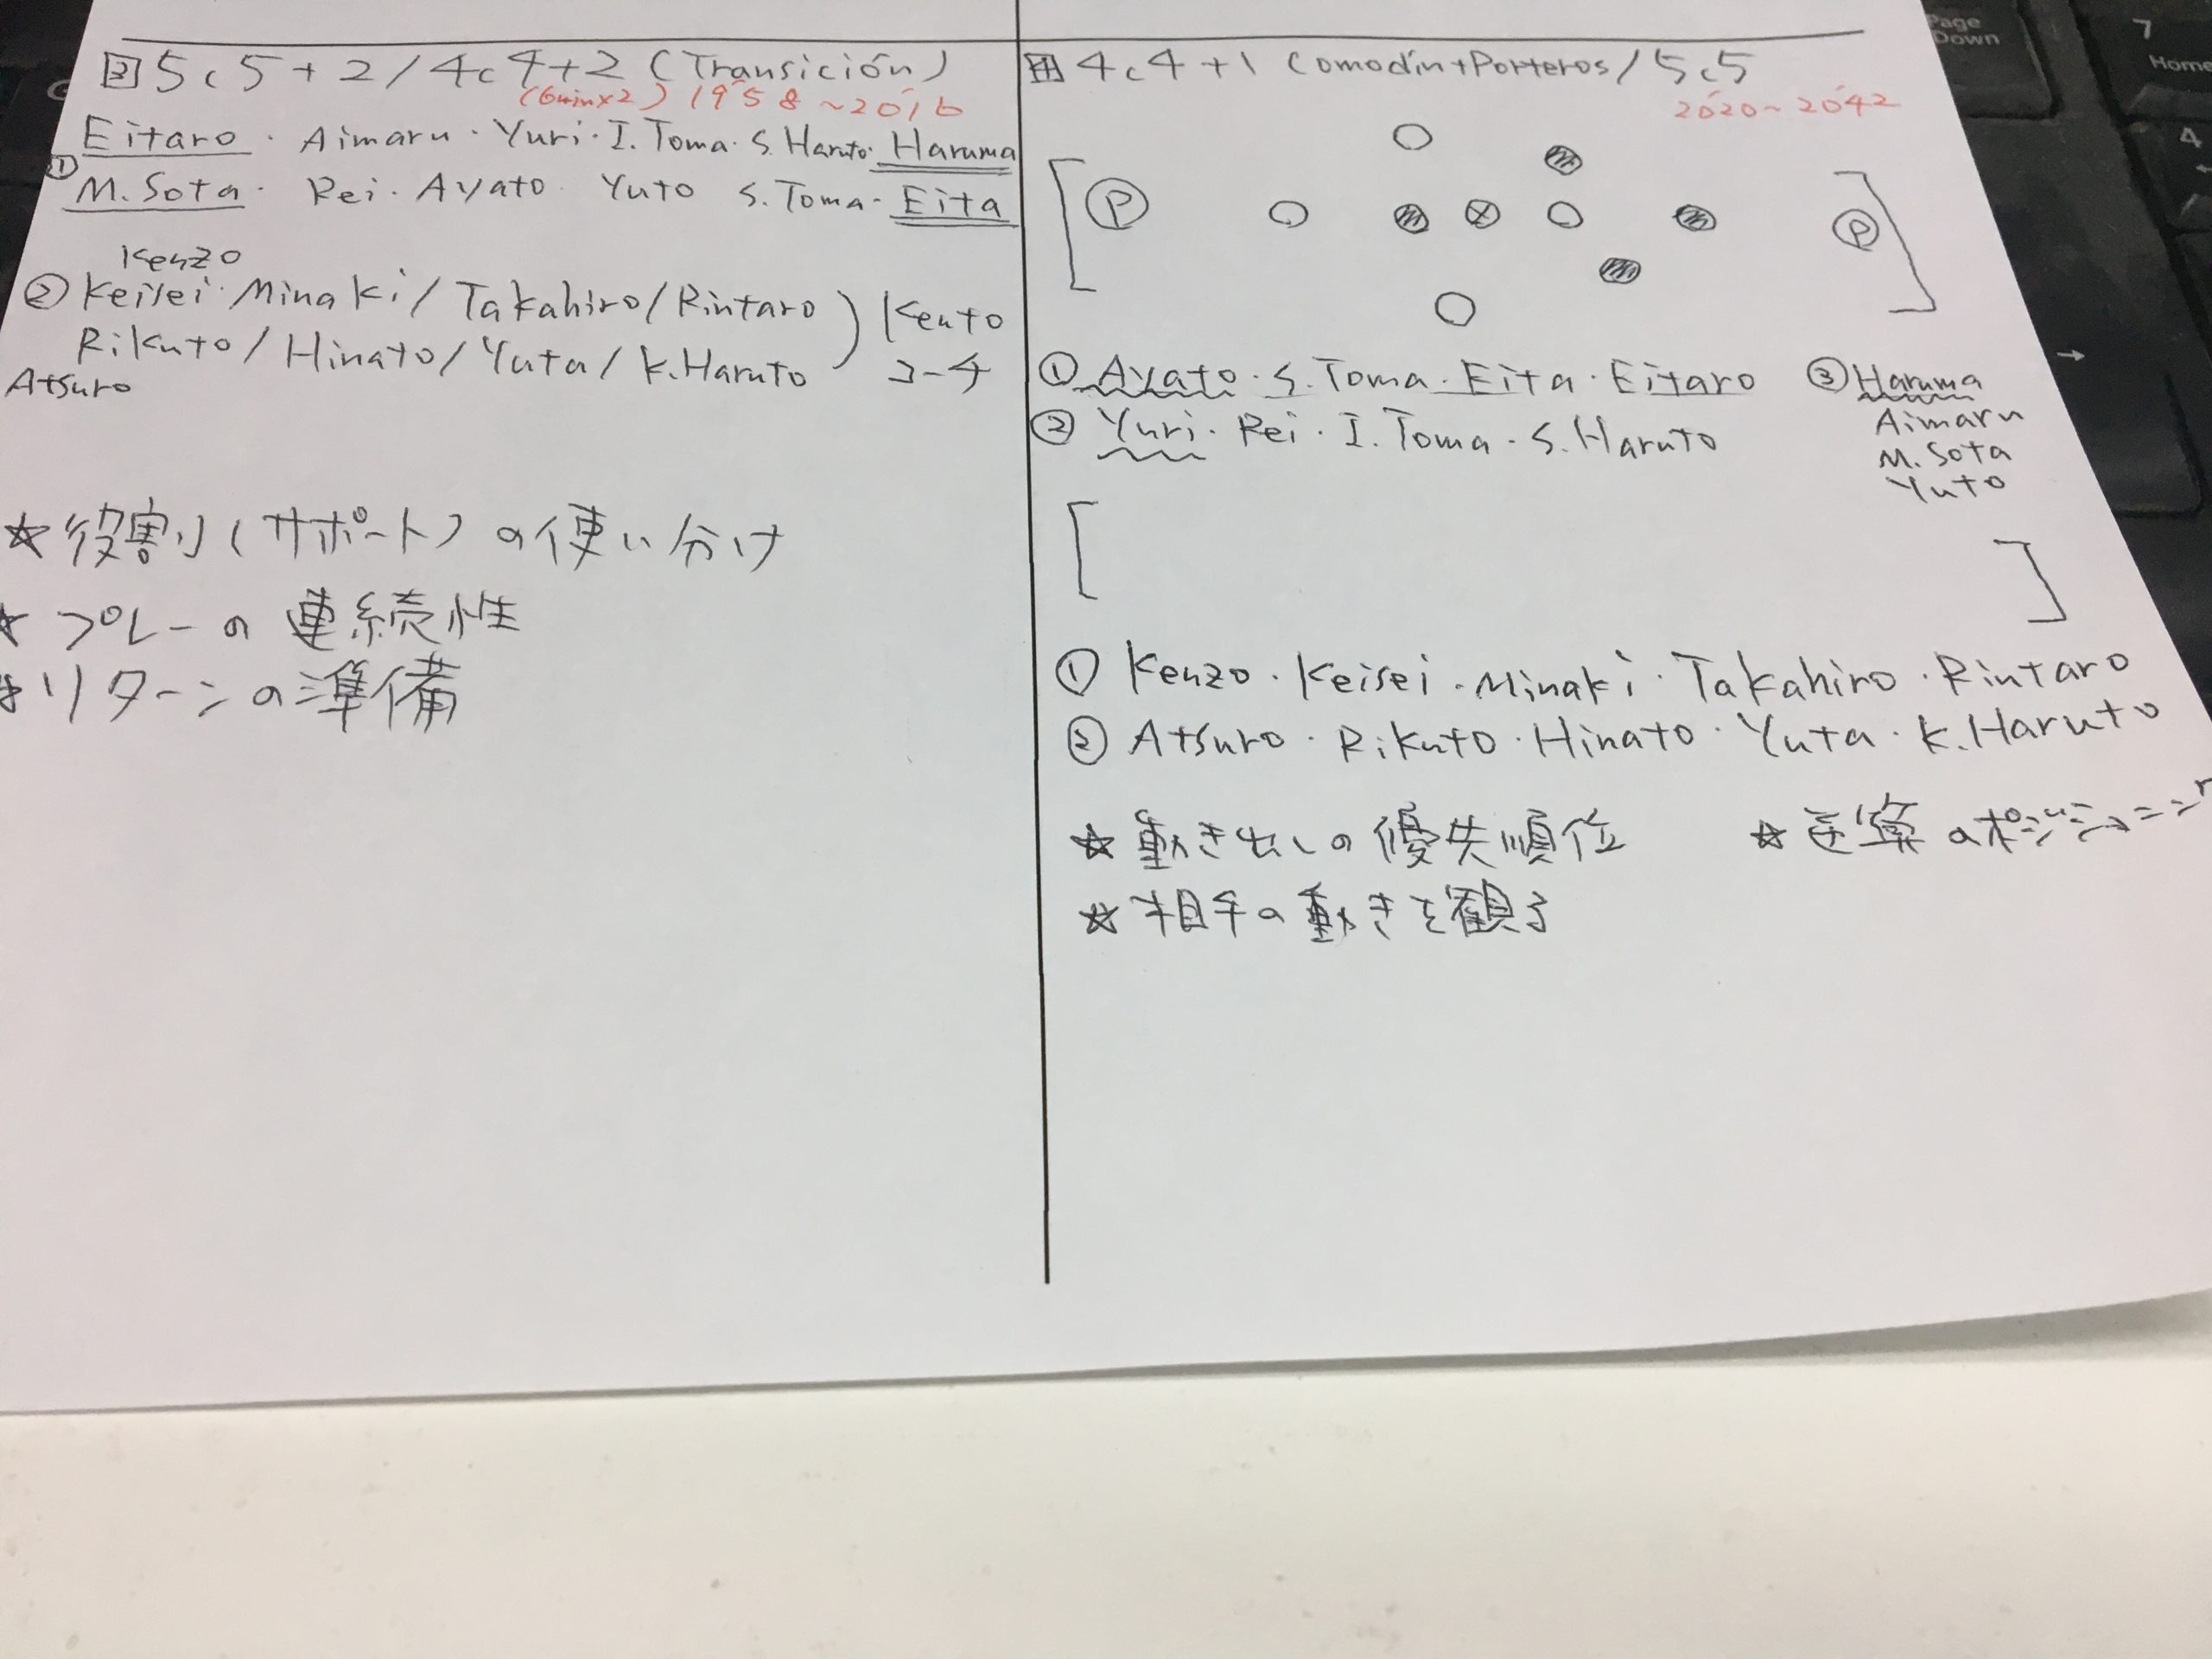 3 5c5+2/4c4+2 (Transición)
(6min×2) 19'58~20'16
Eitaro・Aimaru・Yuri・I.Toma・S.Haruto・Haruma
①
M.Sota・Rei・Ayato Yuto S.Toma・Eita
Kenzo
② Keisei・Minaki/Takahiro/Rintaro
Rikuto/Hinato/Yuta/K.Haruto
Atsuro
) Kento
コーチ
☆役割(サポート)の使い分け
☆プレーの連続性
☆リターンの準備
4 4c4+1 Comodín+Porteros/5c5
20'20~20'42
P
P
① Ayato・S.Toma・Eita・Eitaro
② Yuri・Rei・I.Toma・S.Haruto
③ Haruma
Aimaru
M.Sota
Yuto
① Kenzo・Keisei・Minaki・Takahiro・Rintaro
② Atsuro・Rikuto・Hinato・Yuta・K.Haruto
☆動き出しの優先順位
☆逆算のポジショニング
☆相手の動きを観る
Page
Down
7
Home
4
←
→